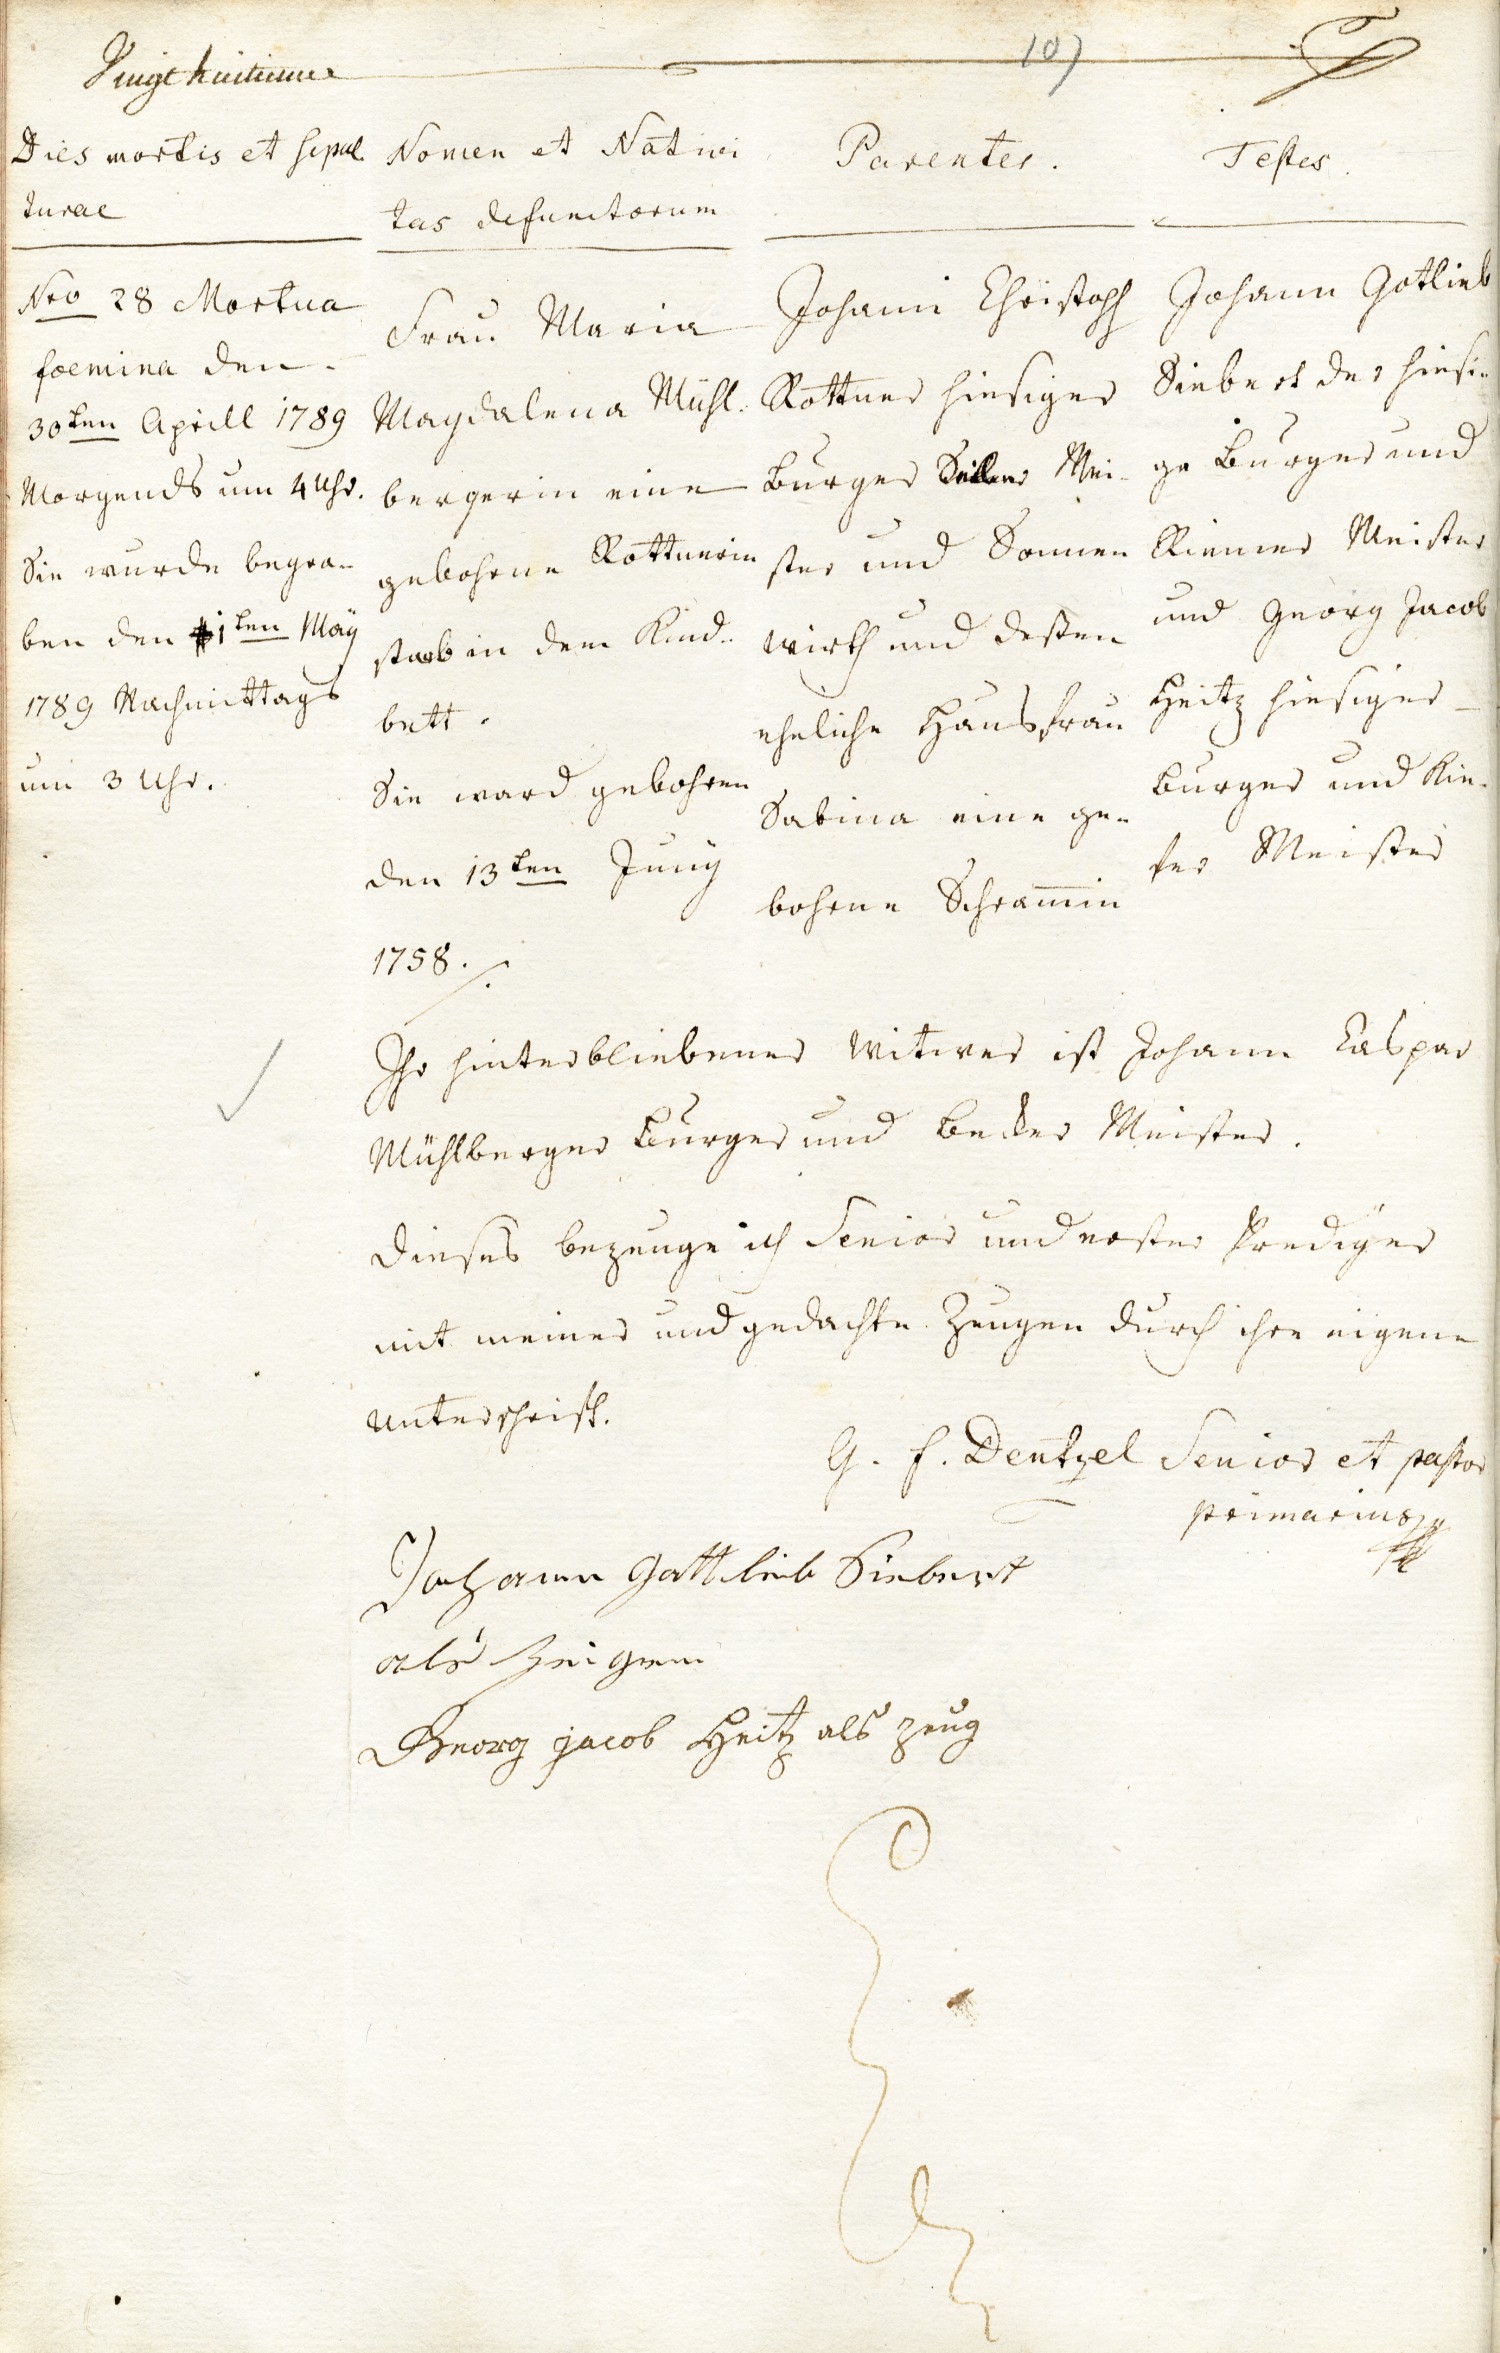 Vingt huitieme
107
Dies mortis et sepul-
turae
Nro 28 Mortua
foemina den
30ten Aprill 1789
Morgends um 4 Uhr.
Sie wurde begra-
ben den 1ten Maÿ
1789 Nachmittags
um 3 Uhr.
Nomen et Nativi
tas defunctorum
Frau Maria
Magdalena Mühl-
bergerin eine
gebohrne Rottnerin
starb in dem Kind-
bett.
Sie ward gebohren
den 13ten Junÿ
1758.
Parentes.
Johann Christoph
Rottner hiesiger
Burger Seiler Mei-
ster und Sonnen
wirth und dessen
eheliche Hausfrau
Sabina eine ge-
bohrne Schram̄in
Testes.
Johann Gotlieb
Siebert der hiesi-
ge Burger und
Riemer Meister
und Georg Jacob
Heitz hiesiger
Burger und Kie-
fer Meister
Ihr hinterbliebener Witwer ist Johann Caspar
Mühlberger Burger und Becker Meister.
Dieses bezeuge ich Senior und erster Prediger
mit meiner und gedachte Zeugen durch ihre eigene
Unterschrift.
G. F. Dentzel Senior et pastor
primarius
Johann Gottlieb Siebert
als Zeigen
Georg jacob Heitz als zeug